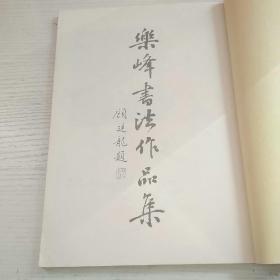 樂峰書法作品集
顧廷龍題